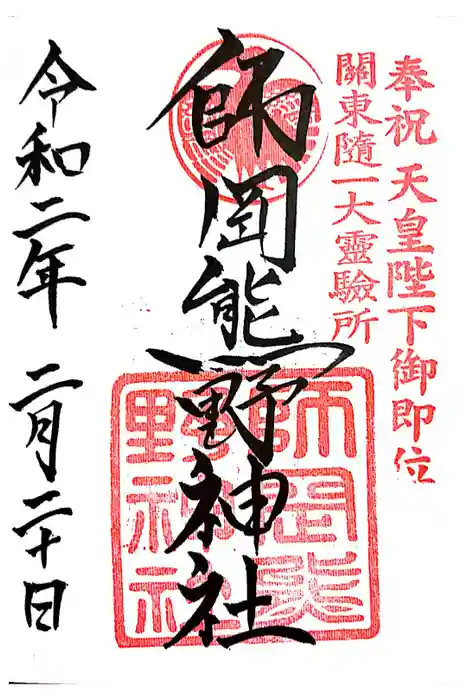 奉祝 天皇陛下御即位
關東隨一大靈驗所
師岡熊野神社
師岡熊
野神社
令和二年 二月二十日